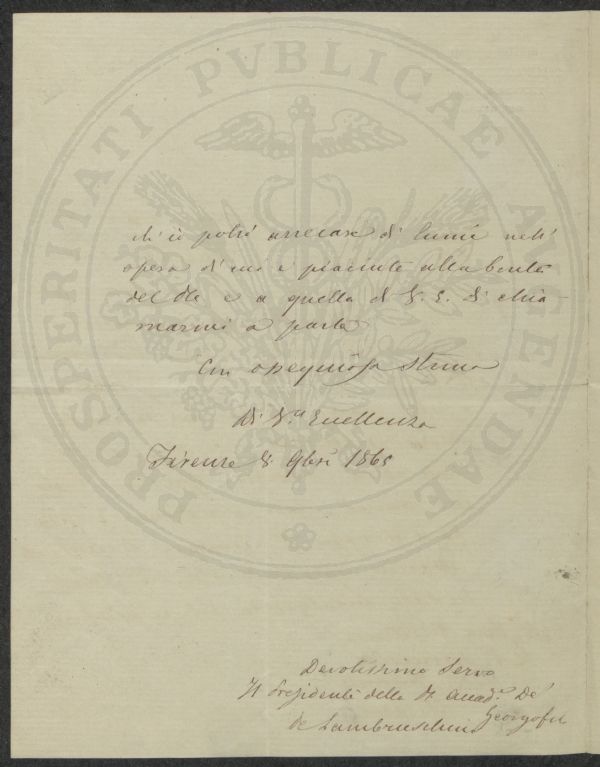 PROSPERITATI PVBLICAE AVGENDAE
potrà arrecare di lumi nell'
opera di cui è piaciuto alla bontà
del Re e a quella di V. E. di chia-
marmi a parte
Con ossequiosa stima
Di V.ª Eccellenza
Firenze 8 9bre 1865
Devotissimo Servo
Il Presidente della R. Accad.ª De'
Georgofili
Lambruschini